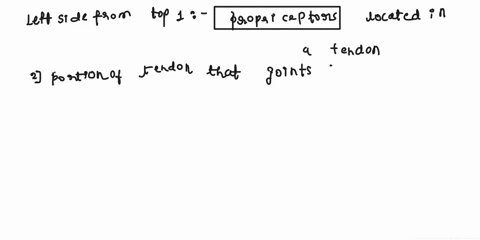 Left side from top 1 :- propri captors located in
a tendon
2) portion of tendon that goints